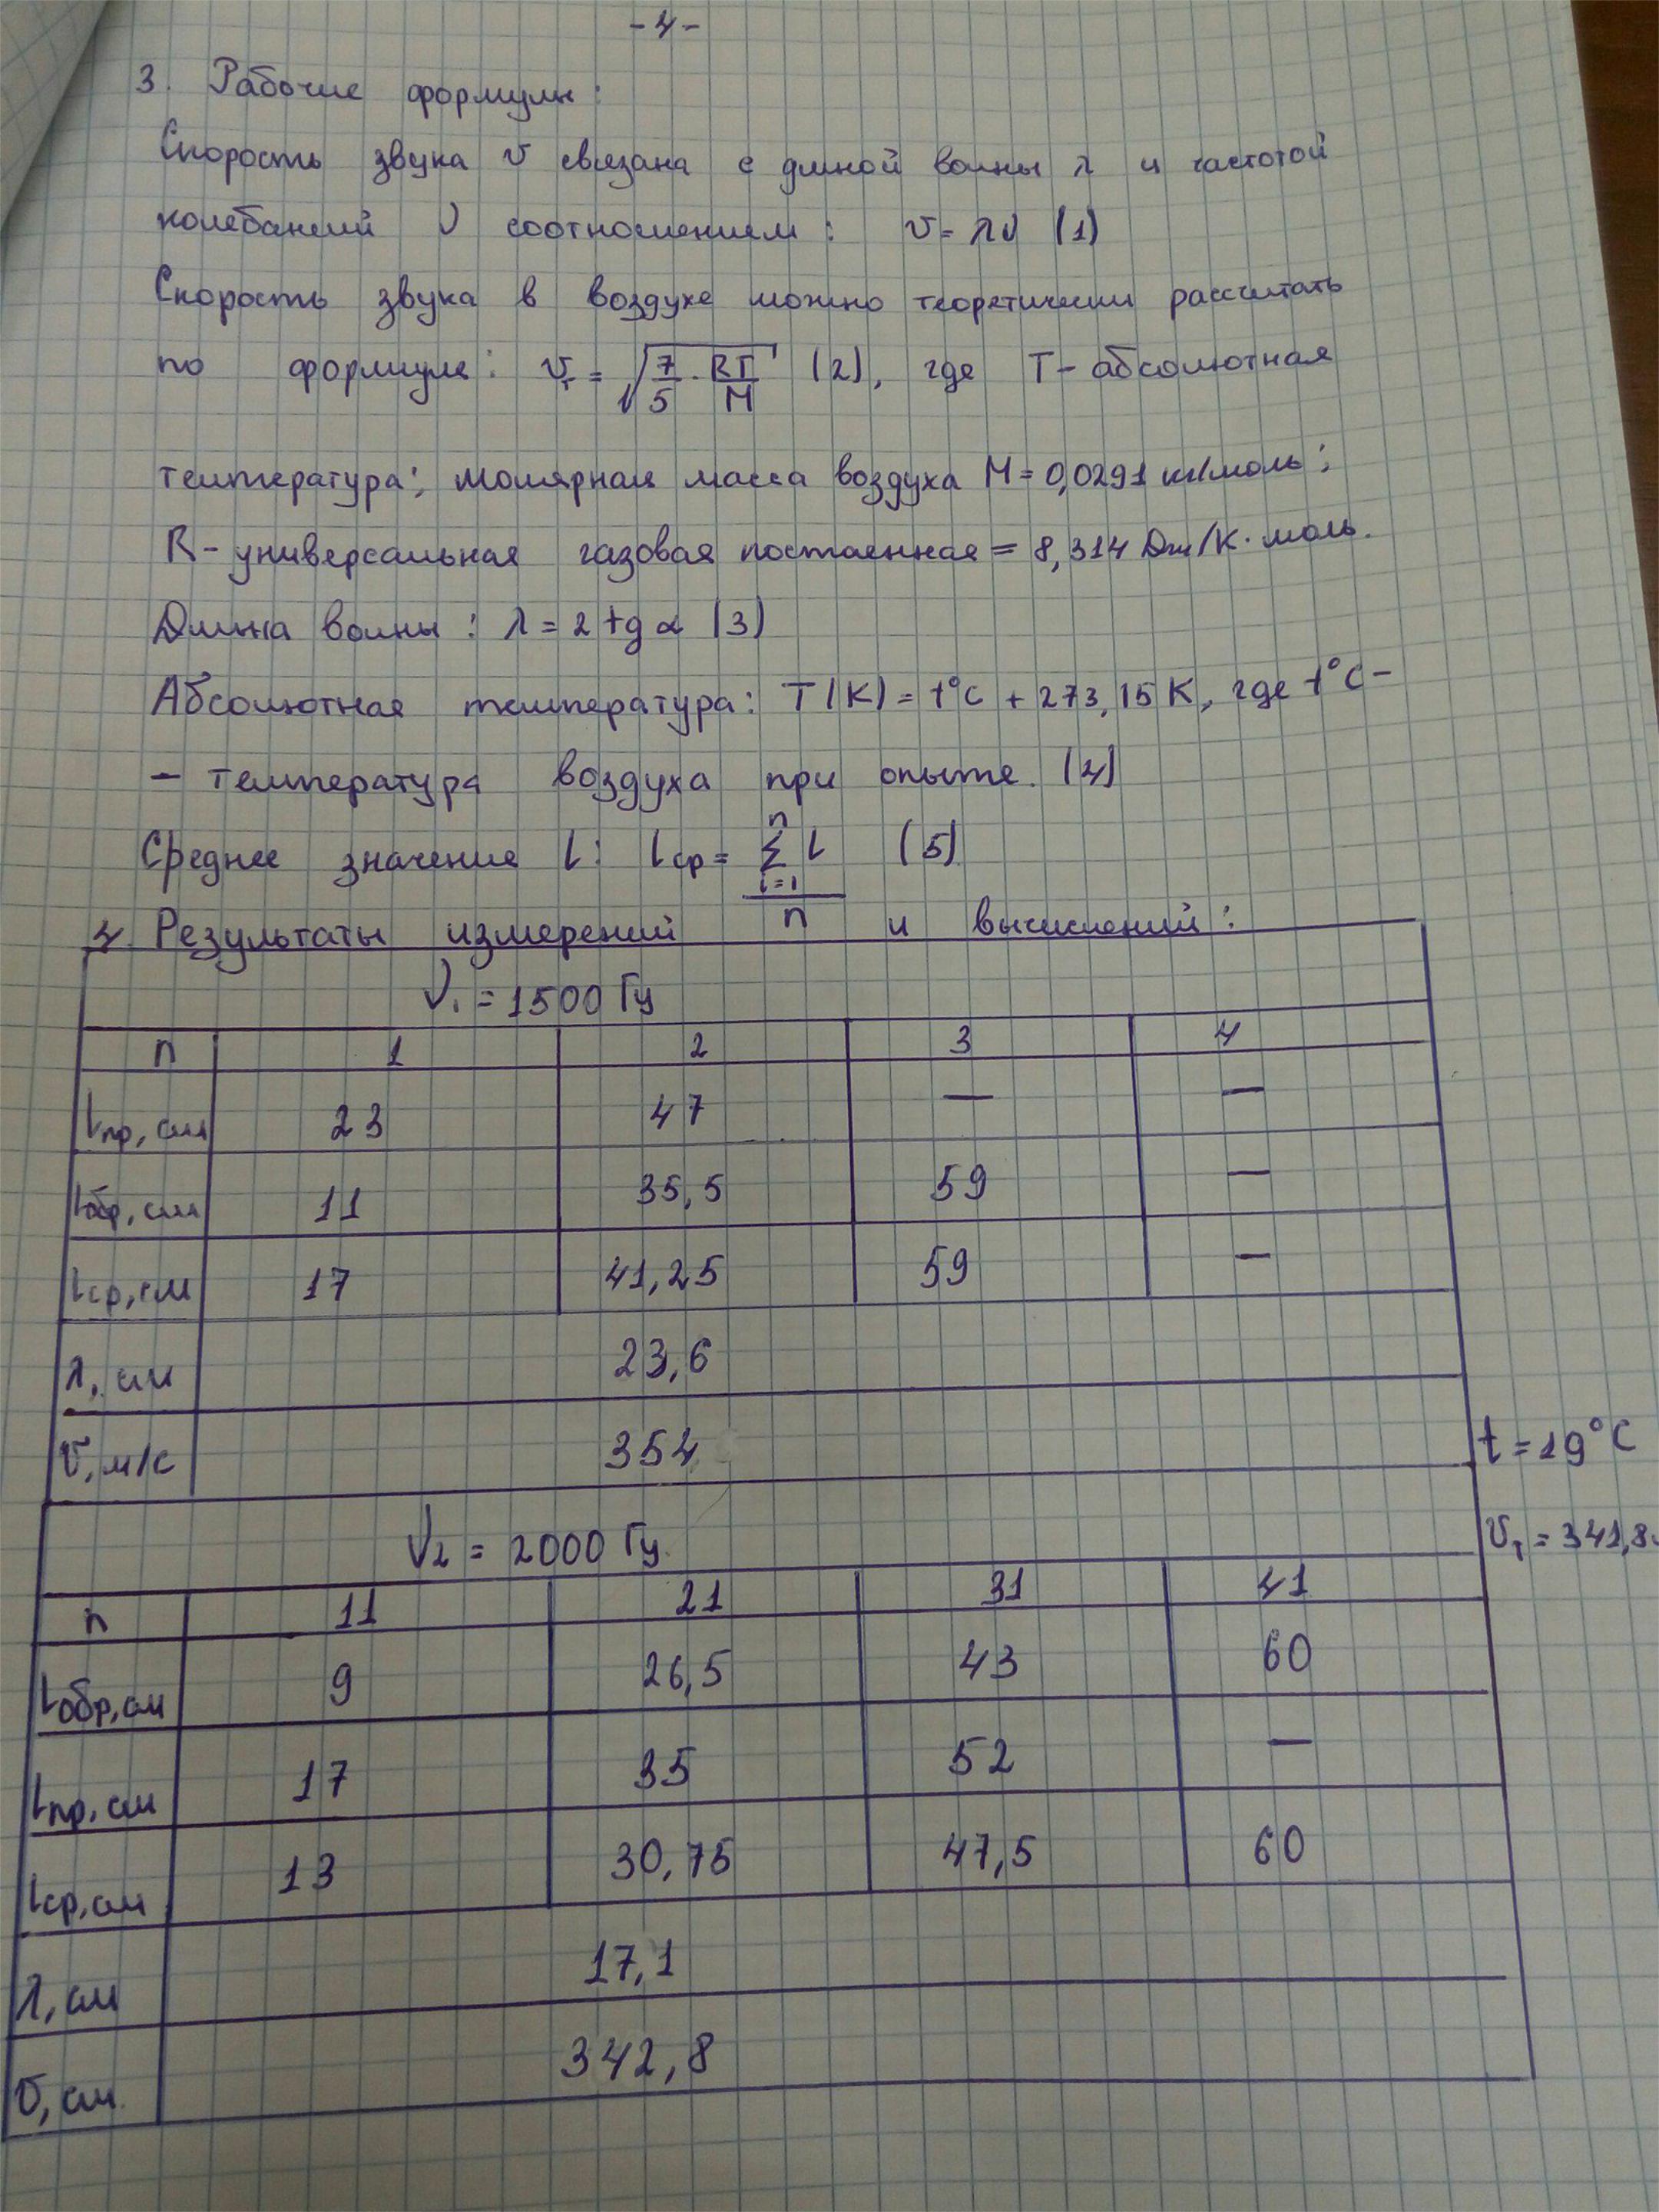 -4-
3. Рабочие формулы:
Скорость звука v связана с длиной волны λ и частотой
колебаний ν соотношением: v = λν (1)
Скорость звука в воздухе можно теоретически рассчитать
по формуле: vт = √(7/5 · RT/M) (2), где T - абсолютная
температура; молярная масса воздуха M = 0,0291 кг/моль;
R - универсальная газовая постоянная = 8,314 Дж/К·моль.
Длина волны: λ = 2 tg α (3)
Абсолютная температура: T(K) = t°C + 273,15 K, где t°C -
- температура воздуха при опыте. (4)
Среднее значение l: lср = Σ l / n (5)
n
i=1
4. Результаты измерений и вычислений:
ν₁ = 1500 Гц
n 1 2 3 4
lпр, см 23 47 — —
lобр, см 11 35,5 59 —
lср, см 17 41,25 59 —
λ, см 23,6
v, м/с 354
t = 19°C
ν₂ = 2000 Гц
vт = 341,8
n 11 21 31 41
lобр, см 9 26,5 43 60
lпр, см 17 35 52 —
lср, см 13 30,75 47,5 60
λ, см 17,1
v, см 342,8